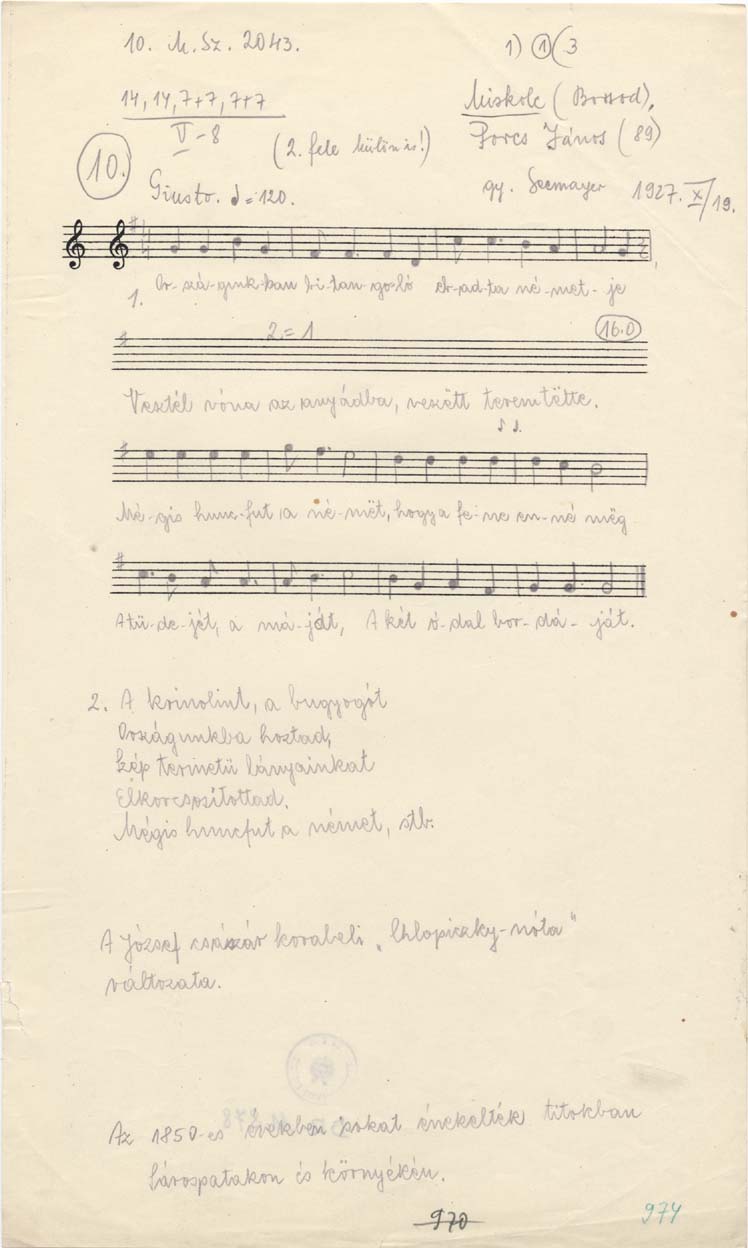 10. M. Sz. 2043.
1) ① ( 3
14, 14, 7+7, 7+7
V – 8
(2. fele külön is!)
Miskolc (Borsod),
Porcs János (89)
gy. Seemayer 1927. X/19.
10.
Giusto. = 120.
1. Or-szá-gunk-ban bi-tan-go-ló eb-ad-ta né-met-je
2. = 1
16.0
Vesztél vóna az anyádba, veszëtt teremtëtte.
Mé-gis hunc-fut a né-mët, hogy a fe-ne en-né mëg
A tü-de-jét, a má-ját, A két ó-dal bor-dá-ját.
2. A krinolint, a bugyogót
Országunkba hoztad,
Szép termetü lányainkat
Elkorcsosítottad.
Mégis huncfut a német, stb.
A József császár korabeli „Chlopiczky-nóta"
változata.
Az 1850-es években sokat énekelték titokban
Sárospatakon és környékén.
970
974